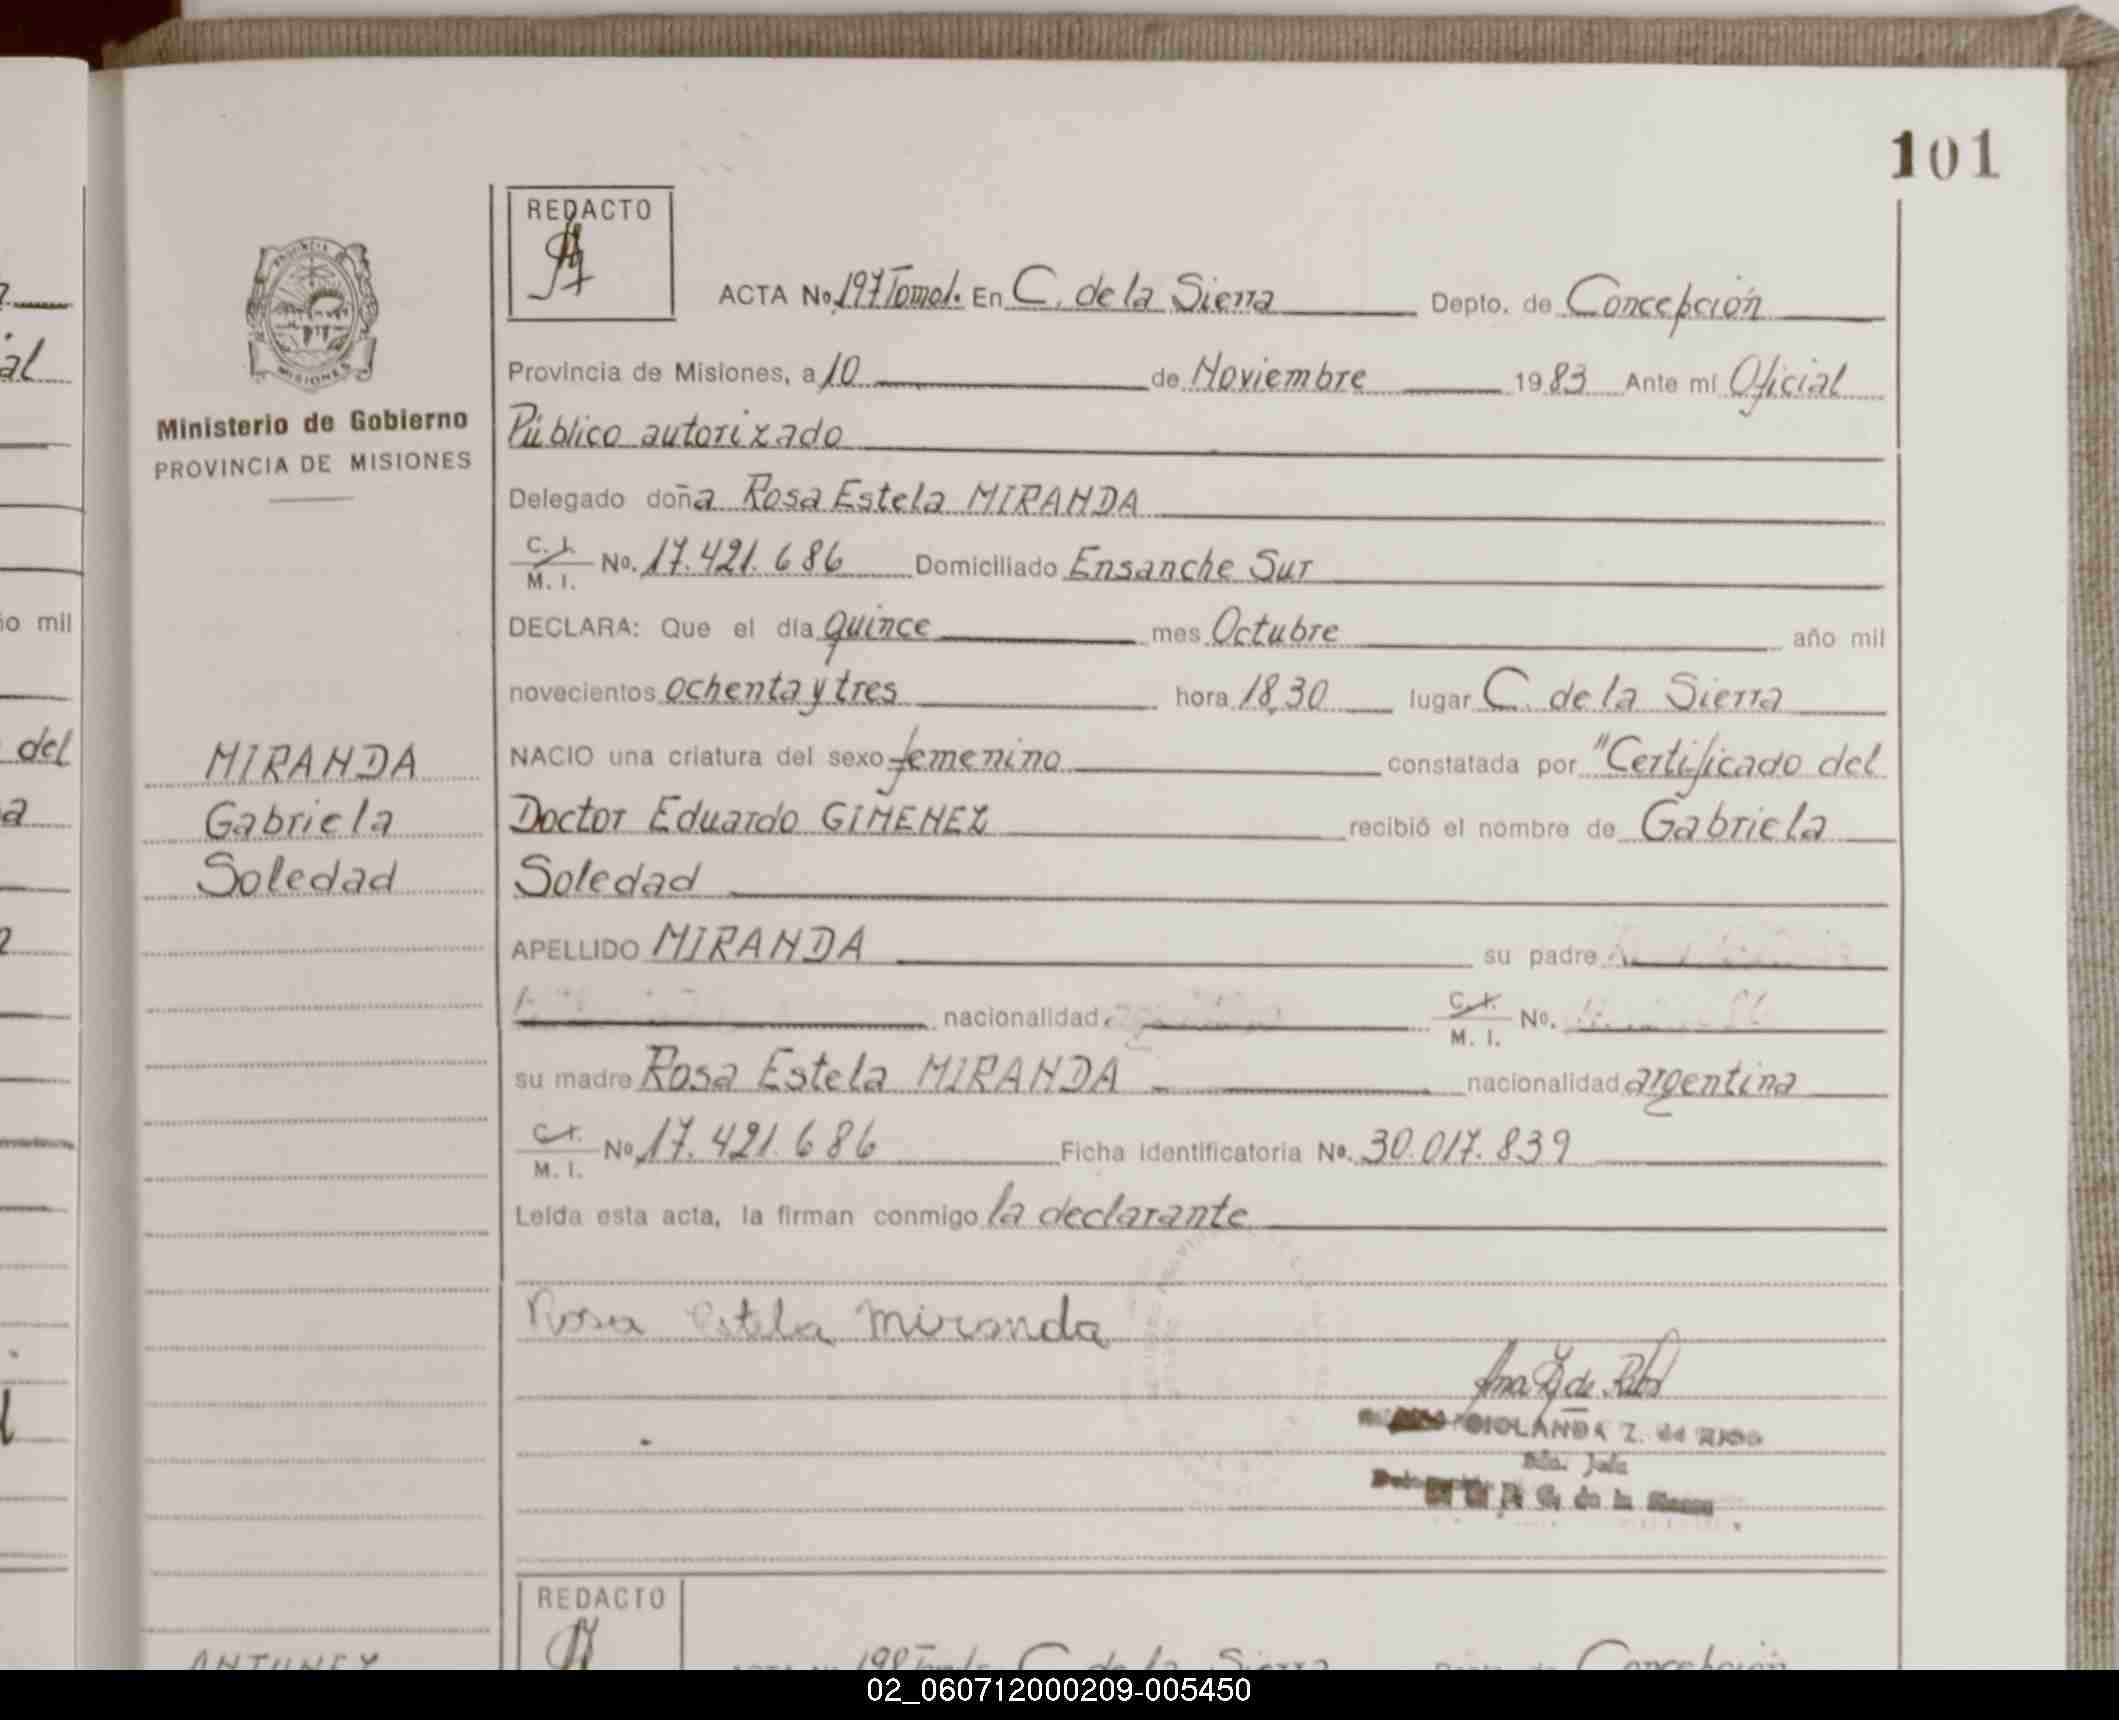 101
REDACTO
ACTA No. 197 Tomo I. En C. de la Sierra Depto. de Concepción
Provincia de Misiones, a 10 de Noviembre 1983 Ante mí Oficial
Público autorizado
Delegado doña Rosa Estela MIRANDA
C. I. / M. I. No. 17.421.686 Domiciliado Ensanche Sur
DECLARA: Que el día quince mes Octubre año mil
novecientos ochenta y tres hora 18,30 lugar C. de la Sierra
NACIO una criatura del sexo femenino constatada por "Certificado del
Doctor Eduardo GIMENEZ recibió el nombre de Gabriela
Soledad
APELLIDO MIRANDA su padre
nacionalidad C. I. / M. I. No.
su madre Rosa Estela MIRANDA nacionalidad argentina
C. I. / M. I. No. 17.421.686 Ficha identificatoria No. 30.017.839
Leída esta acta, la firman conmigo la declarante
Rosa estela miranda
Z. de RIOS
C. de la Sierra
PROVINCIA
MISIONES
Ministerio de Gobierno
PROVINCIA DE MISIONES
MIRANDA
Gabriela
Soledad
REDACTO
198 Tomo I. C. de la Sierra Concepción
ío mil
del
02_060712000209-005450